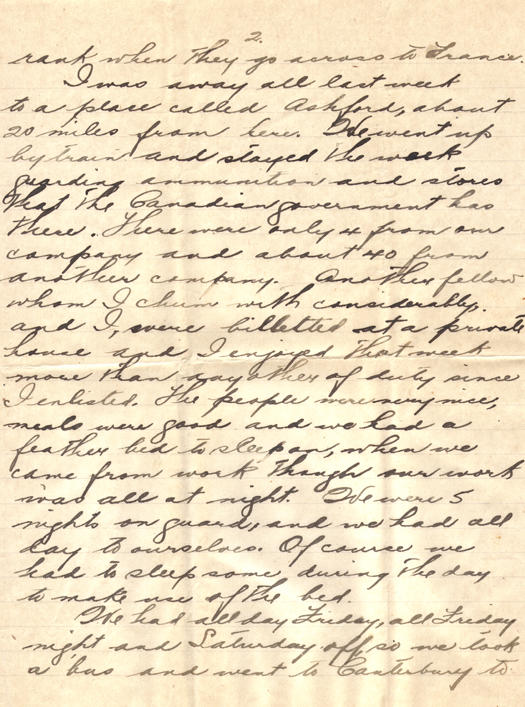 2.
rank when they go across to France.
I was away all last week
to a place called Ashford, about
20 miles from here. We went up
by train and stayed the week
guarding ammunition and stores
that the Canadian government has
there. There were only 4 from our
company and about 40 from
another company. Another fellow
whom I chum with considerably,
and I, were billetted at a private
house and I enjoyed that week
more than any other of duty since
I enlisted. The people were very nice,
meals were good and we had a
feather bed to sleep on, when we
came from work though our work
was all at night. We were 5
nights on guard, and we had all
day to ourselves. Of course we
had to sleep some during the day
to make use of the bed.
We had all day Friday, all Friday
night and Saturday off, so we took
a bus and went to Canterbury to